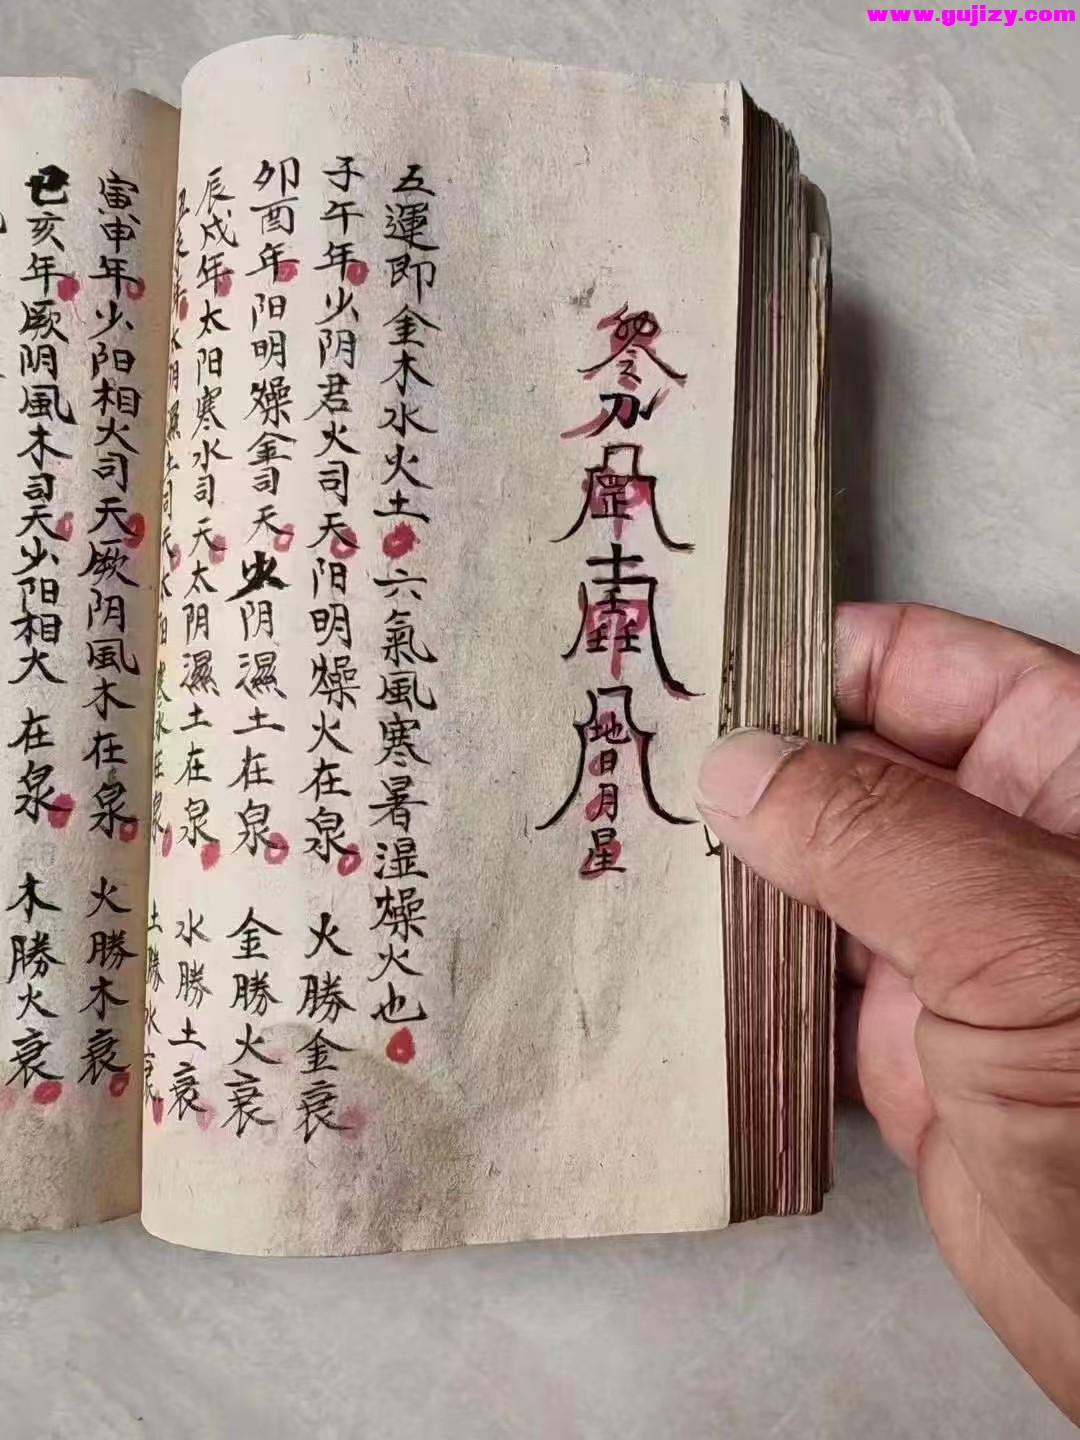 www.gujizy.com
敕令
刀
罡
壬壬壬
地日月星
五運即金木水火土 六氣風寒暑湿燥火也
子午年少阴君火司天阳明燥火在泉 火勝金衰
卯酉年阳明燥金司天少阴濕土在泉 金勝火衰
辰戍年太阳寒水司天太阴濕土在泉 水勝土衰
年 土司天 寒水在泉 土勝水衰
寅申年少阳相火司天厥阴風木在泉 火勝木衰
巳亥年厥阴風木司天少阳相火在泉 木勝火衰